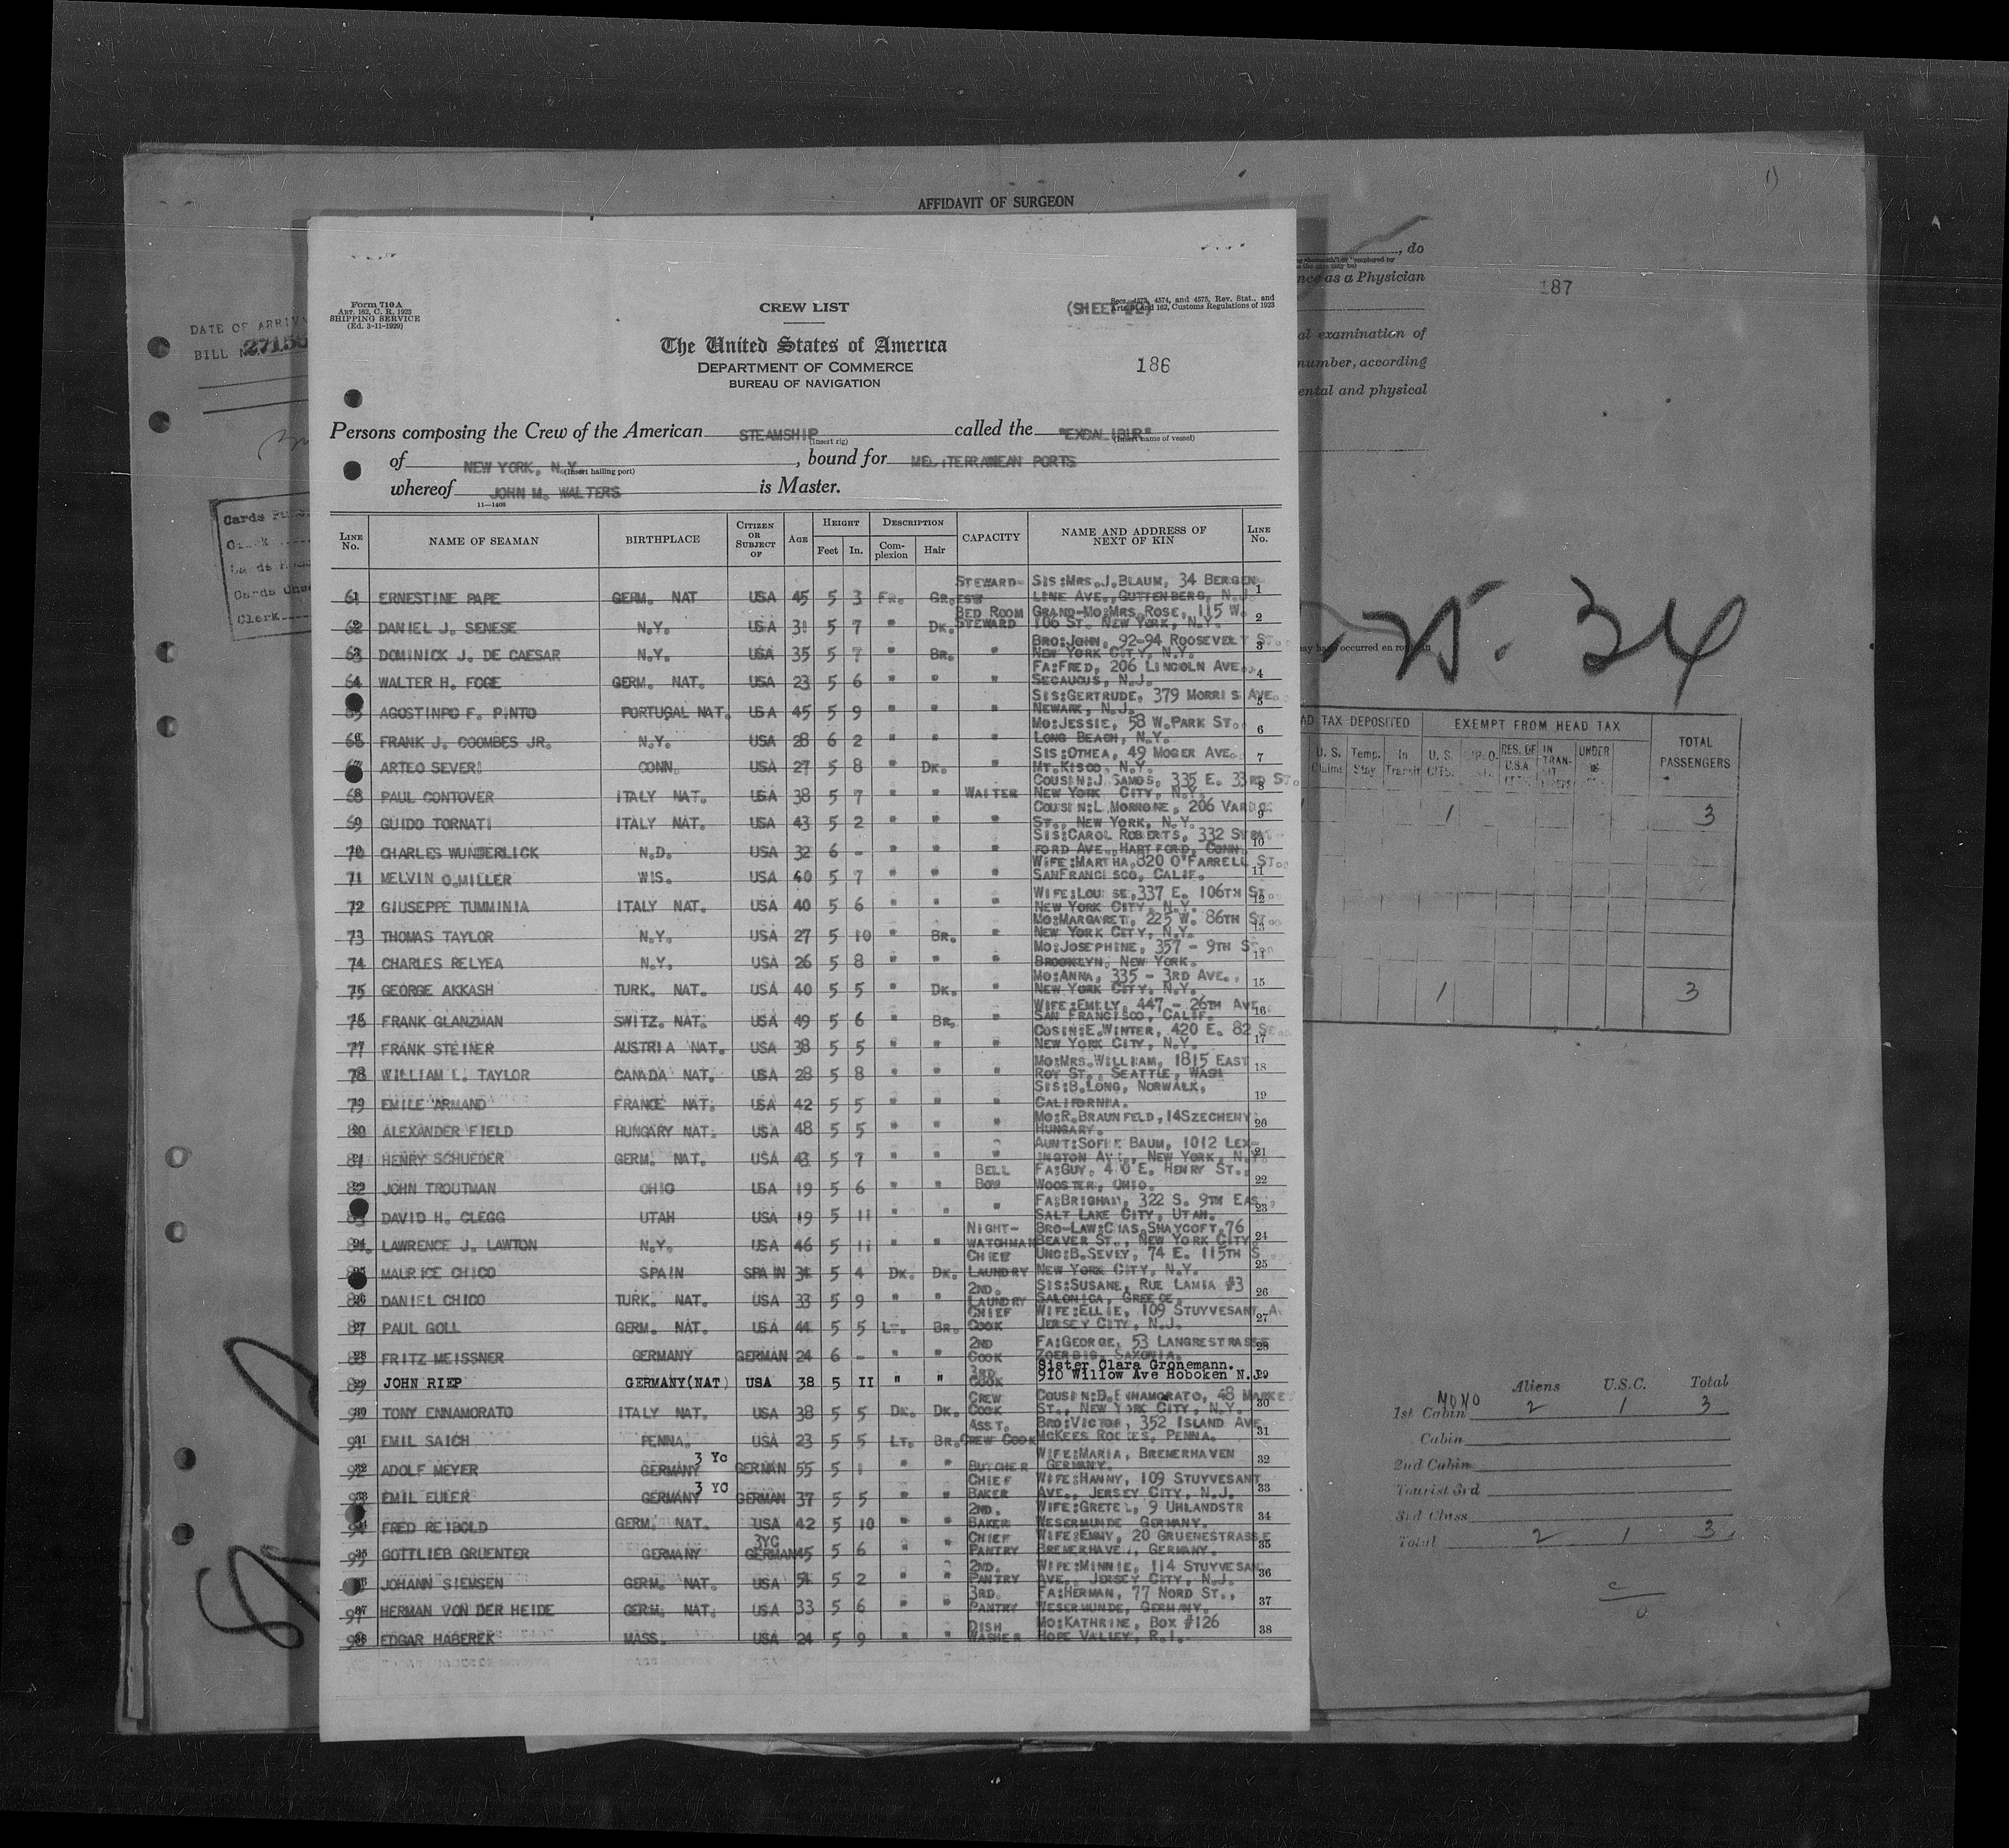 AFFIDAVIT OF SURGEON
Form 710 A
ART. 162, C. R. 1923
SHIPPING SERVICE
(Ed. 3-11-1929)
CREW LIST
(SHEET
Secs. 4573, 4574, and 4575, Rev. Stat., and
and 162, Customs Regulations of 1923
The United States of America
DEPARTMENT OF COMMERCE
BUREAU OF NAVIGATION
186
Persons composing the Crew of the American STEAMSHIP called the "EXCALIBUR"
(Insert rig) (Insert name of vessel)
of NEW YORK, N.Y. , bound for MEDITERRANEAN PORTS
(Insert hailing port)
whereof JOHN M. WALTERS is Master.
11—1408
LINE No. NAME OF SEAMAN BIRTHPLACE CITIZEN OR SUBJECT OF AGE HEIGHT Feet In. DESCRIPTION Complexion Hair CAPACITY NAME AND ADDRESS OF NEXT OF KIN LINE No.
STEWARD- SIS:MRS.J.BLAUM, 34 BERGEN
61 ERNESTINE PAPE GERM. NAT USA 45 5 3 FR. GR. ESW LINE AVE.,GUTTENBERG, N.J. 1
BED ROOM GRAND-MO:MRS.ROSE, 115 W.
62 DANIEL J. SENESE N.Y. USA 31 5 7 " DK. STEWARD 106 ST. NEW YORK, N.Y. 2
BRO:JOHN, 92-94 ROOSEVELT ST.
63 DOMINICK J. DE CAESAR N.Y. USA 35 5 7 " BR. " NEW YORK CITY, N.Y. 3
FA:FRED, 206 LINCOLN AVE.
64 WALTER H. FOGE GERM. NAT. USA 23 5 6 " " " SECAUCUS, N.J. 4
SIS:GERTRUDE, 379 MORRIS AVE.
65 AGOSTINPO F. PINTO PORTUGAL NAT. USA 45 5 9 " " " NEWARK, N.J. 5
MO:JESSIE, 58 W.PARK ST.
66 FRANK J. COOMBES JR. N.Y. USA 28 6 2 " " " LONG BEACH, N.Y. 6
SIS:OTHEA, 49 MOGER AVE.
67 ARTEO SEVERI CONN. USA 27 5 8 " DK. " MT.KISCO, N.Y. 7
COUSIN:J.SAMOS, 335 E. 33RD ST.
68 PAUL CONTOVER ITALY NAT. USA 38 5 7 " " WAITER NEW YORK CITY, N.Y. 8
COUSIN:L.MORRONE, 206
69 GUIDO TORNATI ITALY NAT. USA 43 5 2 " " " ST., NEW YORK, N.Y. 9
SIS:CAROL ROBERTS, 332
70 CHARLES WUNDERLICK N.D. USA 32 6 - " " " FORD AVE.,HARTFORD, CONN. 10
WIFE:MARTHA,820 O'FARRELL ST.
71 MELVIN O.MILLER WIS. USA 40 5 7 " " " SANFRANCISCO, CALIF. 11
WIFE:LOUISE,337 E. 106TH ST.
72 GIUSEPPE TUMMINIA ITALY NAT. USA 40 5 6 " " " NEW YORK CITY, N.Y. 12
MO:MARGARET, 225 W. 86TH ST.
73 THOMAS TAYLOR N.Y. USA 27 5 10 " BR. " NEW YORK CITY, N.Y. 13
MO:JOSEPHINE, 357 - 9TH ST.
74 CHARLES RELYEA N.Y. USA 26 5 8 " " " BROOKLYN, NEW YORK. 14
MO:ANNA, 335 - 3RD AVE.,
75 GEORGE AKKASH TURK. NAT. USA 40 5 5 " DK. " NEW YORK CITY, N.Y. 15
WIFE:EMILY, 447 - 26TH AVE
76 FRANK GLANZMAN SWITZ. NAT. USA 49 5 6 " BR. " SAN FRANCISCO, CALIF. 16
COSIN:E.WINTER, 420 E. 82 ST.
77 FRANK STEINER AUSTRIA NAT. USA 38 5 5 " " " NEW YORK CITY, N.Y. 17
MO:MRS.WILLIAM, 1815 EAST
78 WILLIAM L. TAYLOR CANADA NAT. USA 28 5 8 " " " ROY ST., SEATTLE, WASH 18
SIS:B.LONG, NORWALK,
79 EMILE ARMAND FRANCE NAT. USA 42 5 5 " " " CALIFORNIA. 19
MO:R.BRAUNFELD,14SZECHENY
80 ALEXANDER FIELD HUNGARY NAT. USA 48 5 5 " " " HUNGARY. 20
AUNT:SOFIE BAUM, 1012 LEX-
81 HENRY SCHUEDER GERM. NAT. USA 43 5 7 " " " INGTON AVE., NEW YORK, N.Y. 21
BELL FA:GUY, 4 0 E. HENRY ST.,
82 JOHN TROUTMAN OHIO USA 19 5 6 " " BOY WOOSTER, OHIO. 22
FA:BRIGHAM, 322 S. 9TH EAST,
83 DAVID H. CLEGG UTAH USA 19 5 11 " " " SALT LAKE CITY, UTAH. 23
NIGHT- BRO-LAW:CHAS.SHAYCOFT,76
84 LAWRENCE J. LAWTON N.Y. USA 46 5 11 " " WATCHMAN BEAVER ST., NEW YORK CITY 24
CHIEF UNC:B.SEVEY, 74 E. 115TH S
85 MAURICE CHICO SPAIN SPAIN 34 5 4 DK. DK. LAUNDRY NEW YORK CITY, N.Y. 25
2ND. SIS:SUSANE, RUE LAMIA #3
86 DANIEL CHICO TURK. NAT. USA 33 5 9 " " LAUNDRY SALONICA, GREECE. 26
CHIEF WIFE:ELLIE, 109 STUYVESANT A
87 PAUL GOLL GERM. NAT. USA 44 5 5 LT. BR. COOK JERSEY CITY, N.J. 27
2ND FA:GEORGE, 53 LANGRESTRASSE
88 FRITZ MEISSNER GERMANY GERMAN 24 6 - " " COOK ZOERBIG, SAXONIA. 28
3RD Sister Clara Gronemann.
89 JOHN RIEP GERMANY(NAT) USA 38 5 II " " COOK 910 Willow Ave Hoboken N.J. 29
CREW COUSIN:D.ENNAMORATO, 48 MARKET
90 TONY ENNAMORATO ITALY NAT. USA 38 5 5 DK. DK. COOK ST., NEW YORK CITY, N.Y. 30
ASST. BRO:VICTOR, 352 ISLAND AVE
91 EMIL SAICH PENNA. USA 23 5 5 LT. BR. CREW COOK MCKEES ROCKS, PENNA. 31
3 YC WIFE:MARIA, BREMERHAVEN
92 ADOLF MEYER GERMANY GERMAN 55 5 1 " " BUTCHER GERMANY. 32
3 YC CHIEF WIFE:HANNY, 109 STUYVESANT
93 EMIL EULER GERMANY GERMAN 37 5 5 " " BAKER AVE., JERSEY CITY, N.J. 33
2ND. WIFE:GRETEL, 9 UHLANDSTR
94 FRED REIBOLD GERM. NAT. USA 42 5 10 " " BAKER WESERMUNDE GERMANY. 34
3YC CHIEF WIFE:EMMY, 20 GRUENESTRASSE
95 GOTTLIEB GRUENTER GERMANY GERMAN 45 5 6 " " PANTRY BREMERHAVEN, GERMANY. 35
2ND. WIFE:MINNIE, 114 STUYVESAN
96 JOHANN SIEMSEN GERM. NAT. USA 54 5 2 " " PANTRY AVE., JERSEY CITY, N.J. 36
3RD. FA:HERMAN, 77 NORD ST.,
97 HERMAN VON DER HEIDE GERM. NAT. USA 33 5 6 " " PANTRY WESERMUNDE, GERMANY. 37
DISH MO:KATHRINE, BOX #126
98 EDGAR HABEREK MASS. USA 24 5 9 " " WASHER HOPE VALLEY, R.I. 38
DATE OF
BILL
Cards
Clerk
Cards
Cards
Clerk
, do
as a Physician
187
examination of
number, according
mental and physical
occurred en
25. 34
TAX DEPOSITED EXEMPT FROM HEAD TAX TOTAL PASSENGERS
U. S. Claims Temp. Stay In Transit U. S. CITS. RES. OF U.S.A. IN TRANSIT UNDER 16
1 3
1 3
Aliens U.S.C. Total
1st Cabin 2 1 3
Cabin
2nd Cabin
Tourist 3rd
3rd Class
Total 2 1 3